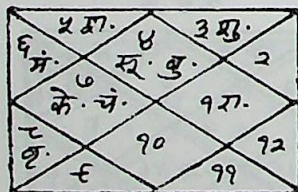 ५ श. ३ शु.
६ मं. ४ सू. बु. २
७ के. चं. १ रा.
८ बृ. १० १२
९ ११